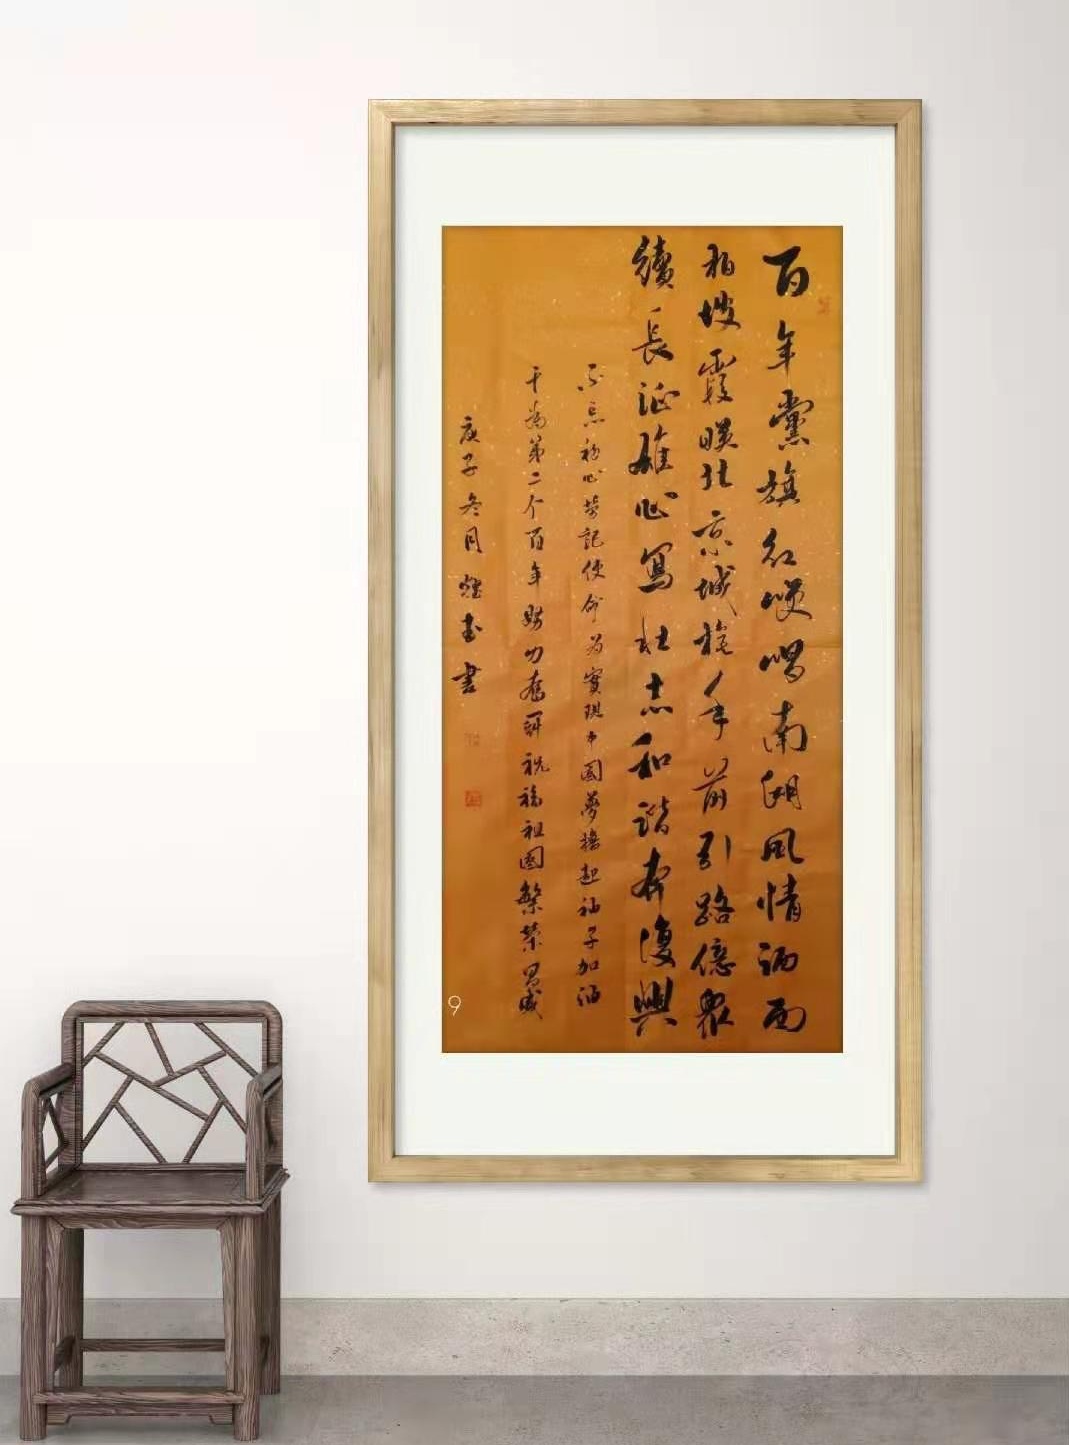 百年黨旗紅唱南湖風情洒西
柏坡霞映北京城手前引路億眾
續長征雄心寫壯志和諧奔復興
不忘初心勞記使命为實現中國夢擼起袖子加油
干為第二个百年努力奮鬥祝福祖國繁榮昌盛
庚子冬月書
9